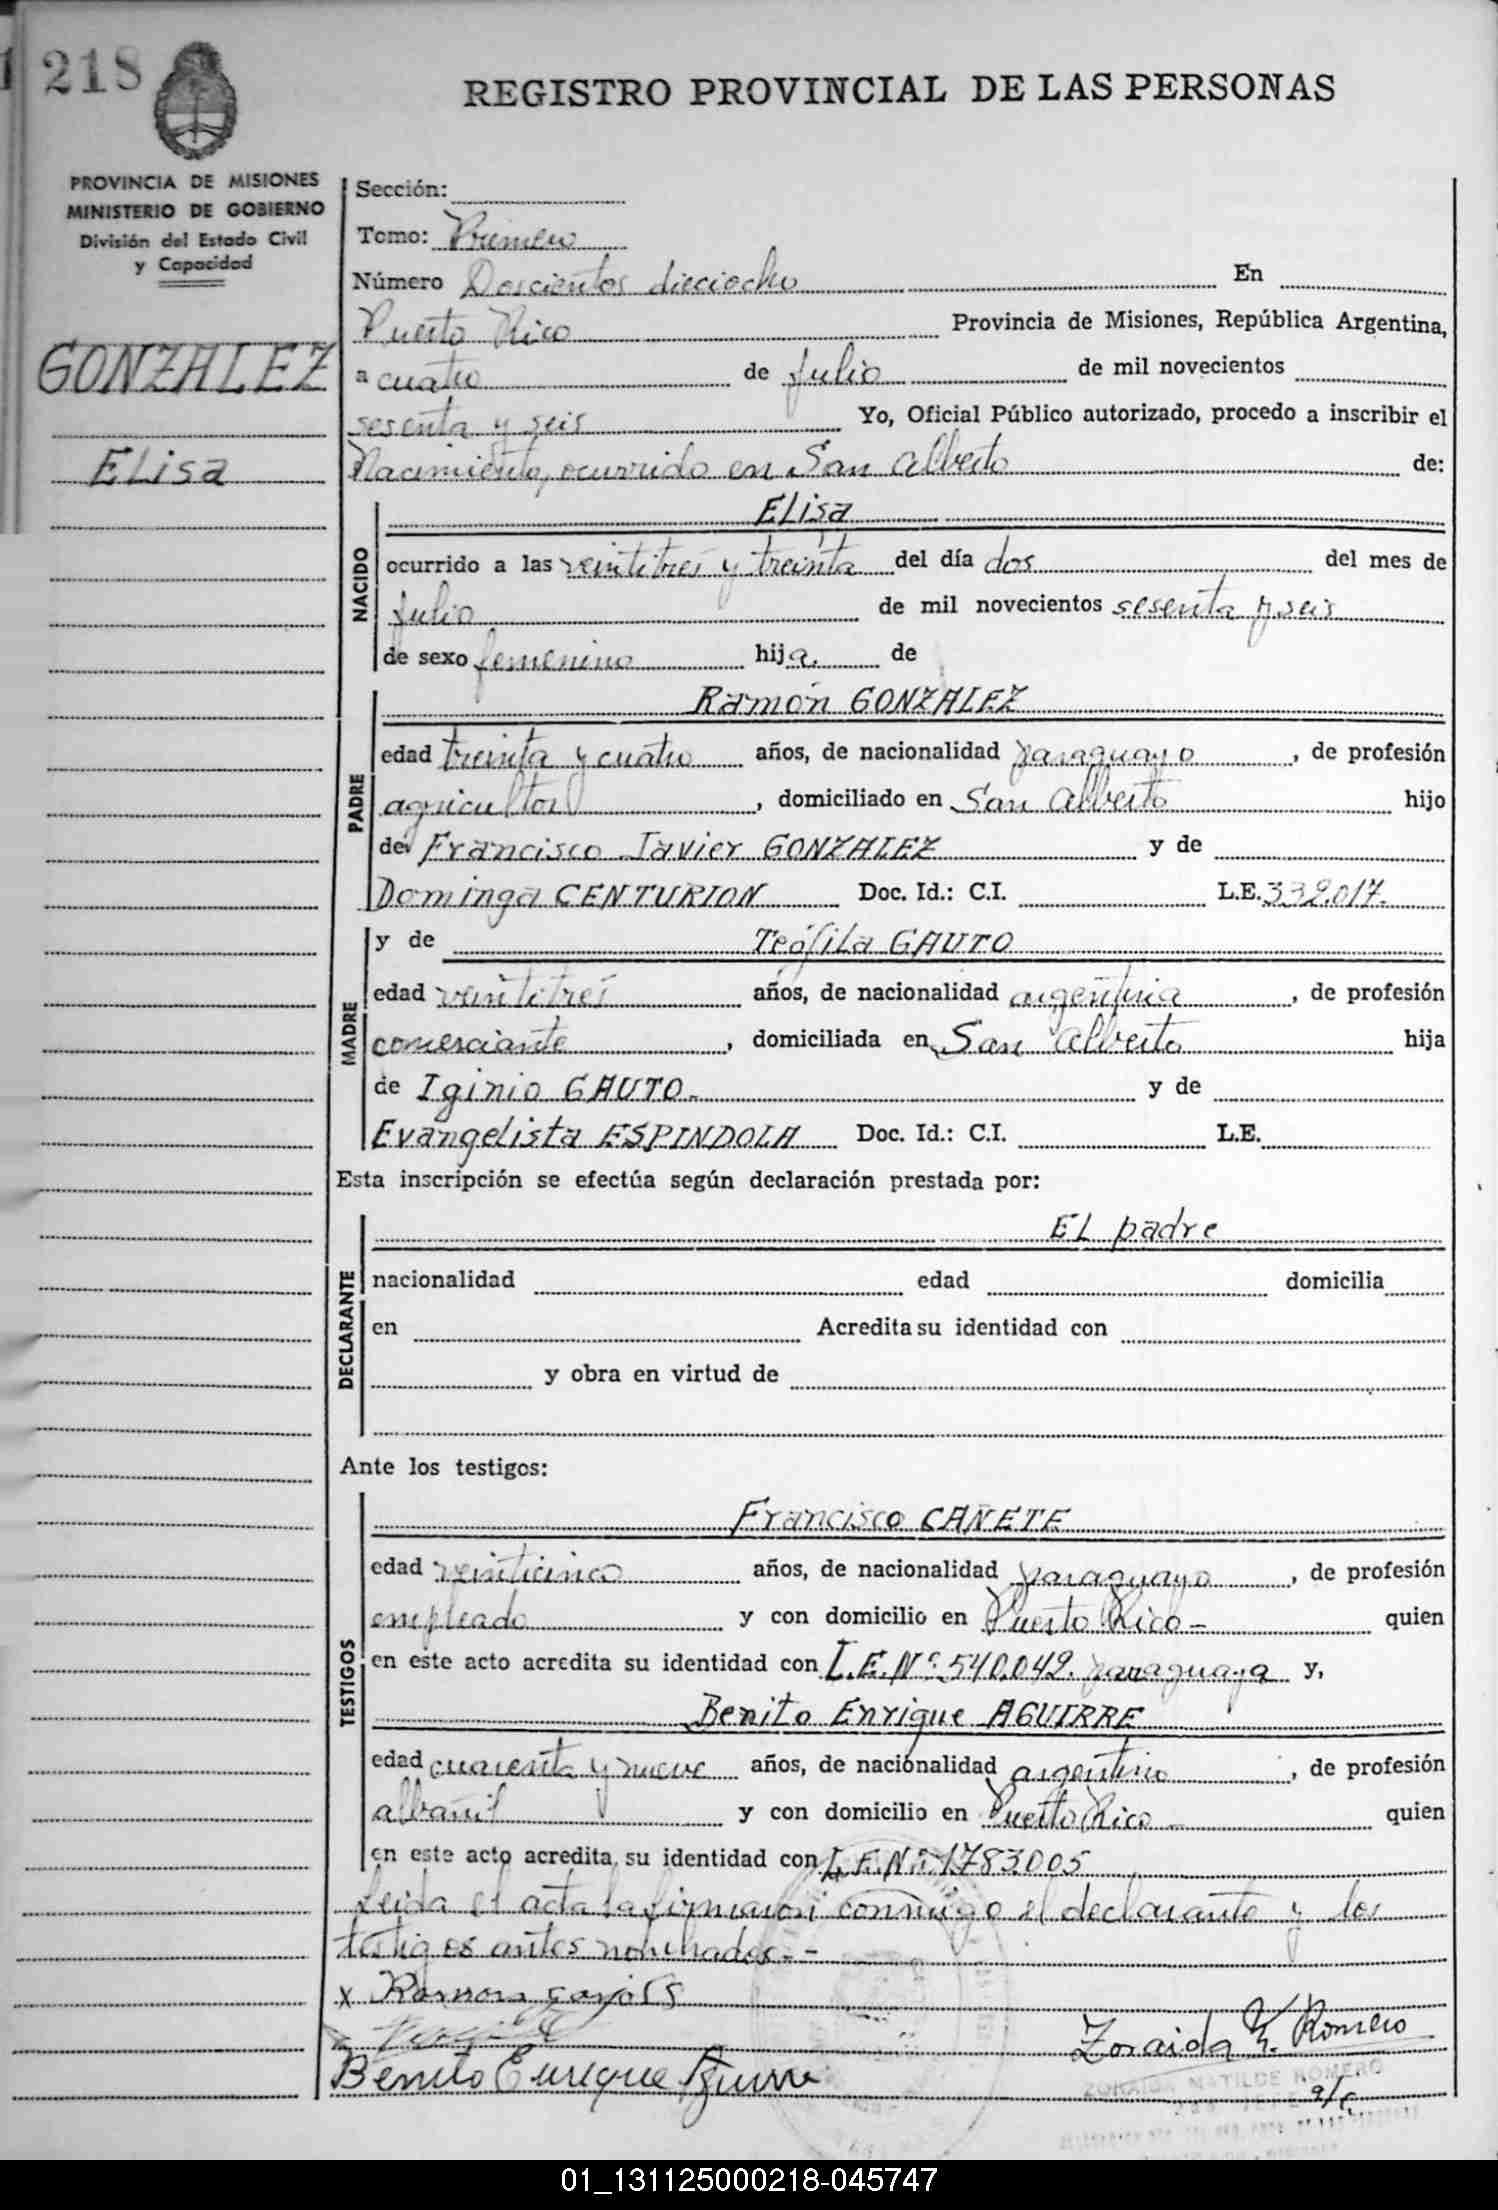 218
REGISTRO PROVINCIAL DE LAS PERSONAS
PROVINCIA DE MISIONES
MINISTERIO DE GOBIERNO
División del Estado Civil
y Capacidad
GONZALEZ
ELisa
Sección:
Tomo: Primero
Número Doscientos dieciocho En
Puerto Rico Provincia de Misiones, República Argentina,
a cuatro de Julio de mil novecientos
sesenta y seis Yo, Oficial Público autorizado, procedo a inscribir el
Nacimiento, ocurrido en San Alberto de:
NACIDO
ELisa
ocurrido a las veintitres y treinta del día dos del mes de
Julio de mil novecientos sesenta y seis
de sexo femenino hija. de
PADRE
Ramón GONZALEZ
edad treinta y cuatro años, de nacionalidad paraguayo, de profesión
agricultor, domiciliado en San Alberto hijo
de Francisco Javier GONZALEZ y de
Dominga CENTURION Doc. Id.: C.I. L.E. 332.017.
MADRE
y de Teófila GAUTO
edad veintitres años, de nacionalidad argentina, de profesión
comerciante, domiciliada en San Alberto hija
de Iginio GAUTO.- y de
Evangelista ESPINDOLA Doc. Id.: C.I. L.E.
Esta inscripción se efectúa según declaración prestada por:
DECLARANTE
EL padre
nacionalidad edad domicilia
en Acredita su identidad con
y obra en virtud de
Ante los testigos:
TESTIGOS
Francisco CAÑETE
edad veinticinco años, de nacionalidad paraguayo, de profesión
empleado y con domicilio en Puerto Rico - quien
en este acto acredita su identidad con L.E.Nº 540.049. paraguaya y,
Benito Enrique AGUIRRE
edad cuarenta y nueve años, de nacionalidad argentino, de profesión
albañil y con domicilio en Puerto Rico - quien
en este acto acredita su identidad con L.E.Nº 1783005
Leida el acta la firmaron conmigo el declarante y los
testigos antes nombrados.--
x Ramon
Zoraida M. Romero
Benito Enrique Aguirre
ZORAIDA MATILDE ROMERO
a/c
01_131125000218-045747